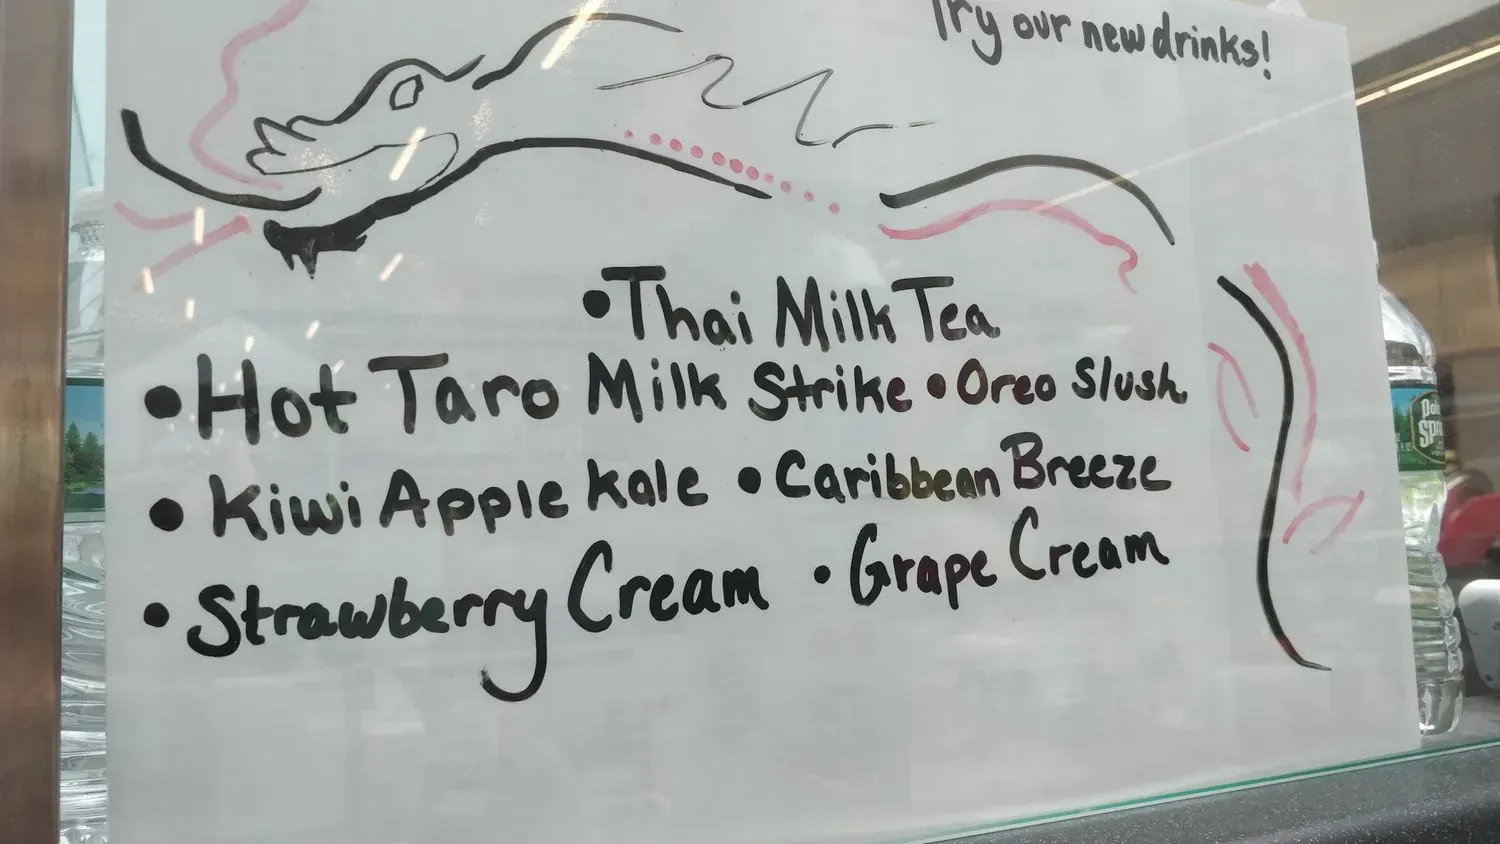 Try our new drinks!
•Thai Milk Tea
•Hot Taro Milk Strike •Oreo Slush
• Kiwi Apple Kale • Caribbean Breeze
• Strawberry Cream • Grape Cream